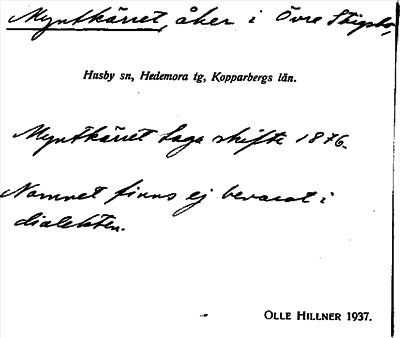 Myntkärret, åker i Övre Stigsbo,
Husby sn, Hedemora tg, Kopparbergs län.
Myntkärret Laga skifte 1876.
Namnet finns ej bevarat i
dialekten.
OLLE HILLNER 1937.